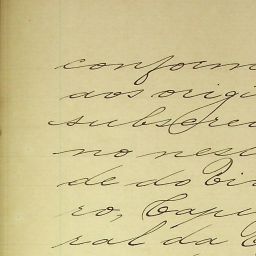 conform
aos origi
subscre
no nest
de do Ri
ro, Capi
ral da